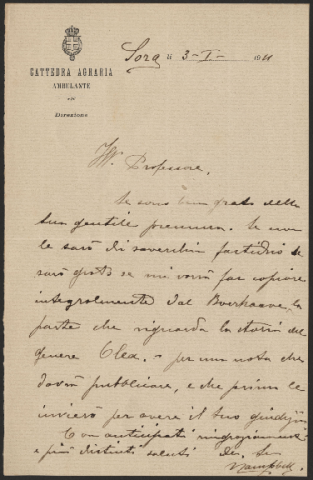 CATTEDRA AGRARIA
AMBULANTE
Direzione
Sora li 3-I-1911
Ill. Professore,
Le sono ben grato della
sua gentile premura. Se non
le sarà di soverchio fastidio le
sarò grato se mi vorrà far copiare
integralmente dal Boerhaave, la
parte che riguarda la storia del
genere Olea. - per una nota che
dovrò pubblicare, e che prima le
invierò per avere il suo giudizio
Con anticipati ringraziamenti
e più distinti saluti